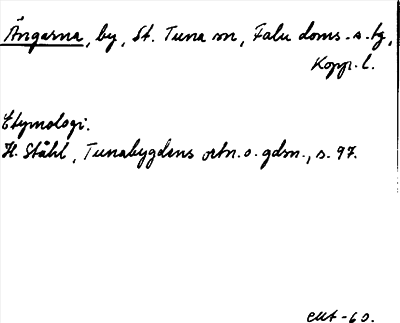 Ängarna, by, St. Tuna sn, Falu doms.s. tg,
Kopp. l.
Etymologi.
H. Ståhl, Tunabygdens ortn. o. gdsn., s. 97.
-60.